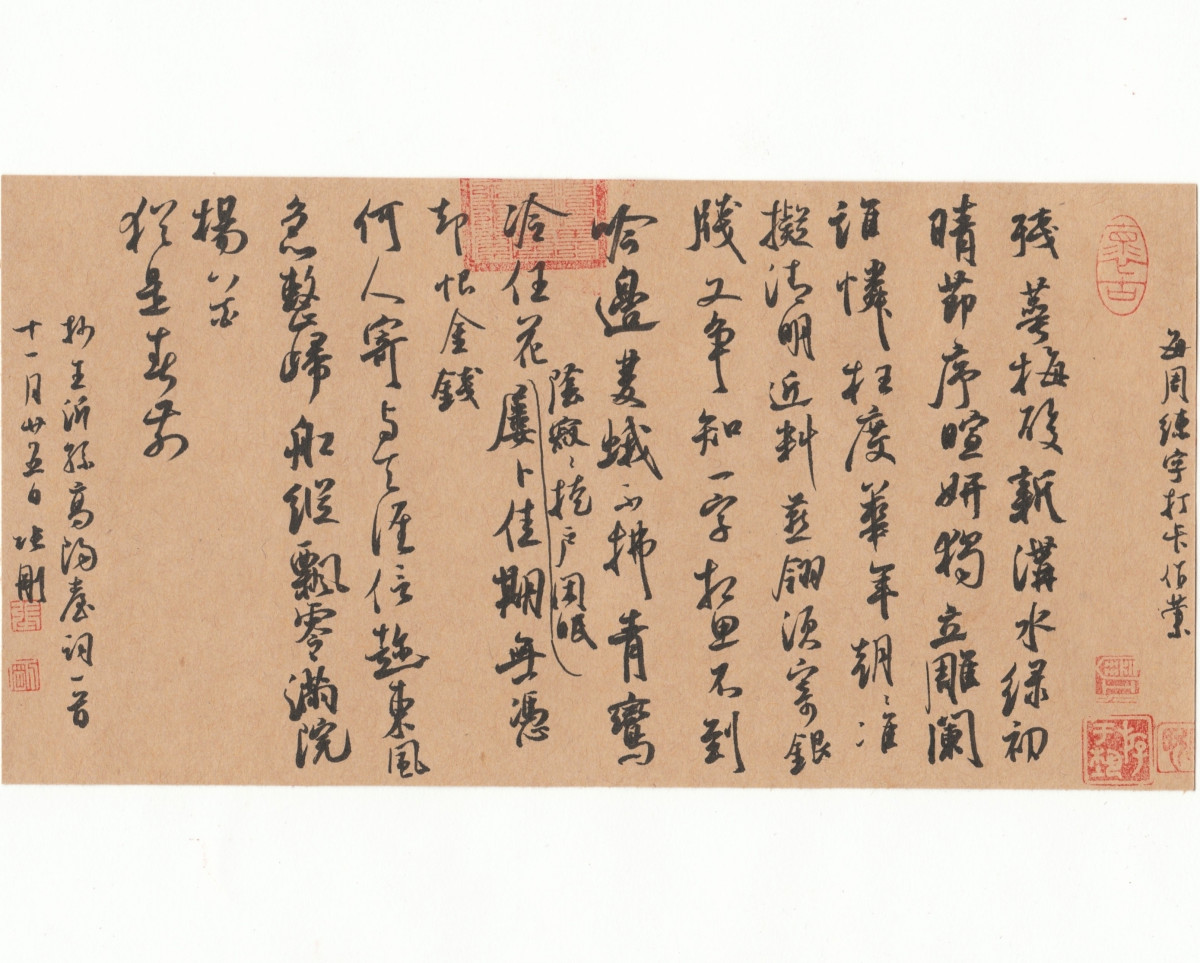 每周练字打卡作業
残萼梅酸新溝水绿初
晴節序暄妍獨立雕闌
誰憐枉度華年朝々准
擬清明近料燕翎须寄銀
牋又争知一字相思不到
吟邊雙蛾不拂青鸞
冷任花屢卜佳期無憑
蔭寂々掩户闲眠
却恨金錢
何人寄与天涯信趁東風
急整歸船縱飄零滿院
楊花
猶是春前
抄王沂孫高陽臺詞一首
十一月廿五日张剛